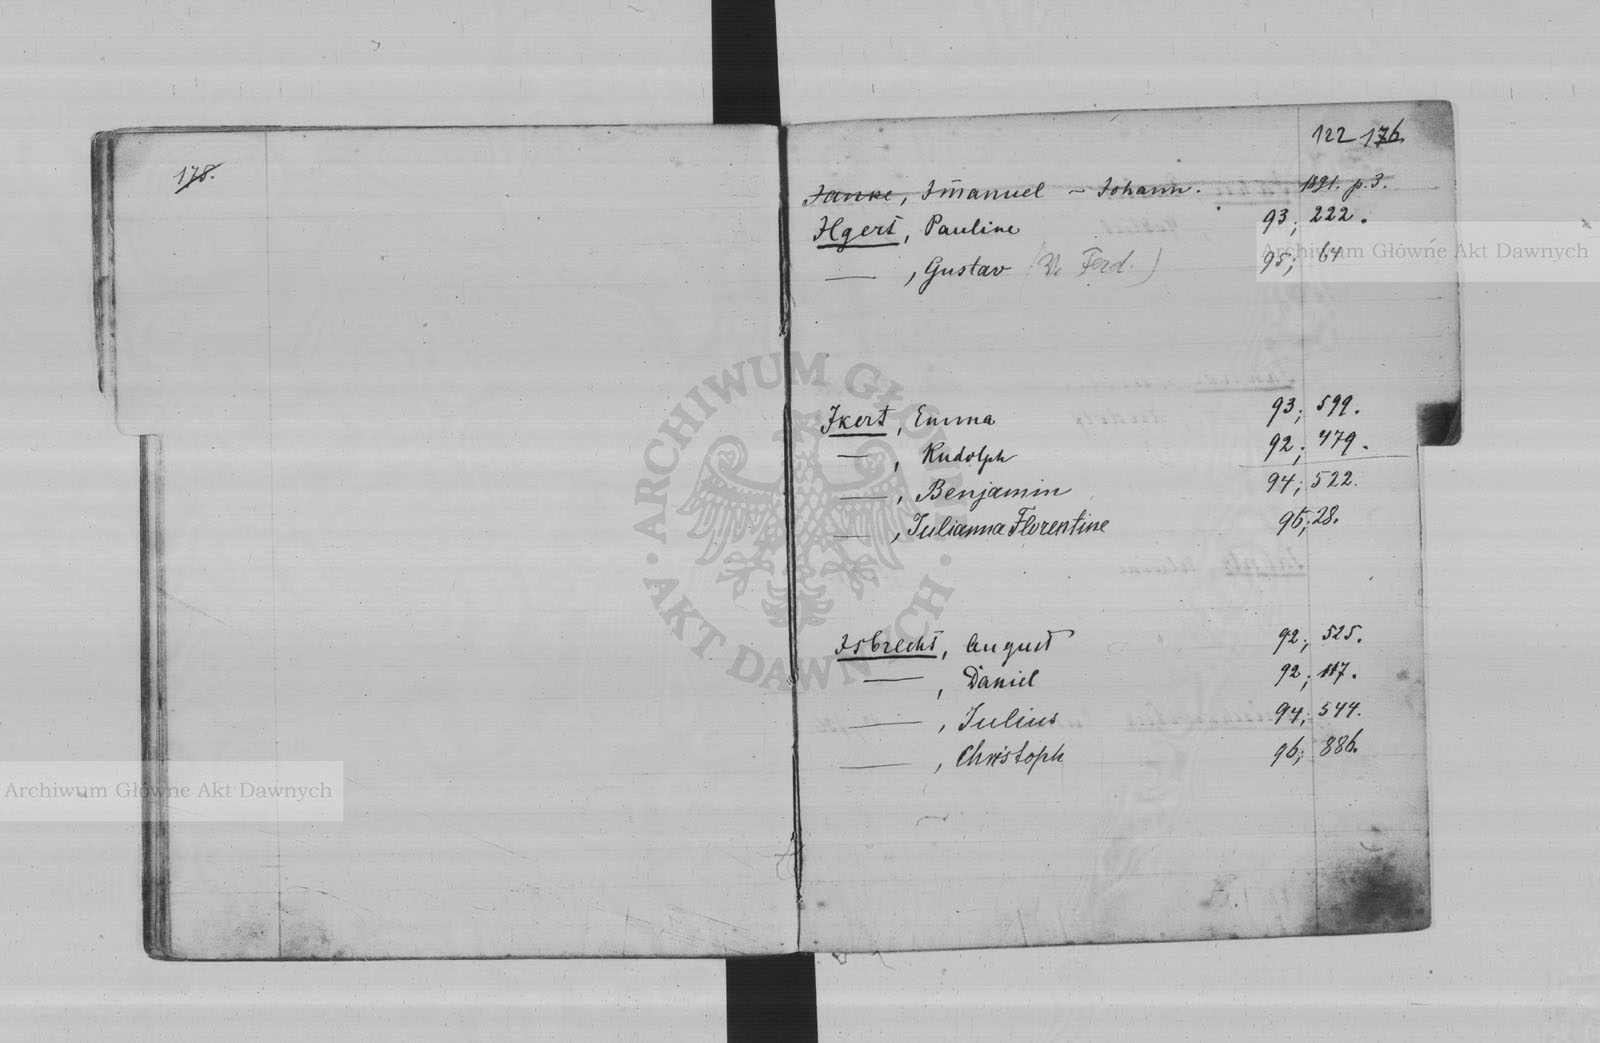 178.
122 176.
Janke, Im̄anuel - Johann. 1891. p. 3.
Ilgert, Pauline 93; 222.
— , Gustav (Ferd.) 95; 64
Ikert, Emma 93; 599.
— , Rudolph 92; 479.
— , Benjamin 94; 522.
— , Julianna Florentine 95; 28.
Isbrecht, August 92; 525.
— , Daniel 92; 117.
— , Julius 94; 544.
— , Christoph 96; 886.
Archiwum Główne Akt Dawnych
ARCHIWUM GŁÓWNE · AKT DAWNYCH ·
Archiwum Główne Akt Dawnych